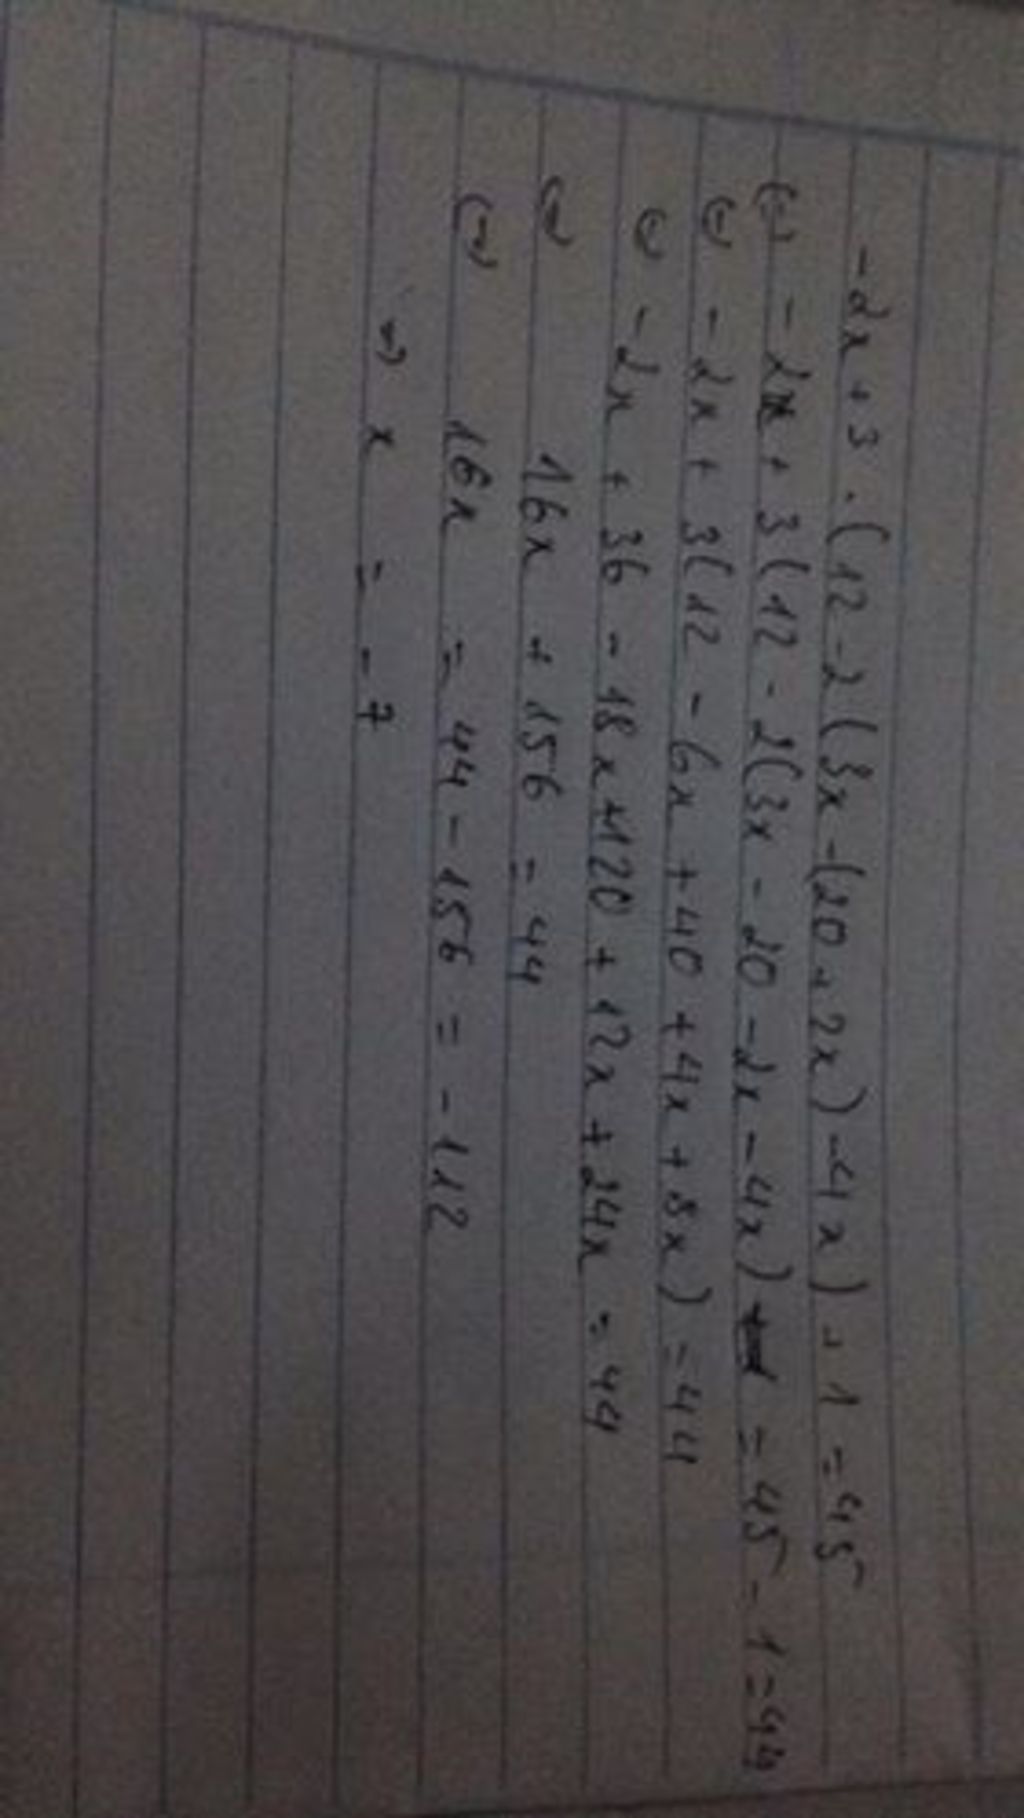 -2x + 3 . (12 - 2(3x - (20 + 2x) - 4x) + 1 = 45
(=) - 2x + 3(12 - 2(3x - 20 - 2x - 4x) = 45 - 1 = 44
(=) - 2x + 3(12 - 6x + 40 + 4x + 8x) = 44
(=) - 2x + 36 - 18x + 120 + 12x + 24x = 44
(=) 16x + 156 = 44
(=) 16x = 44 - 156 = - 112
=) x = - 7